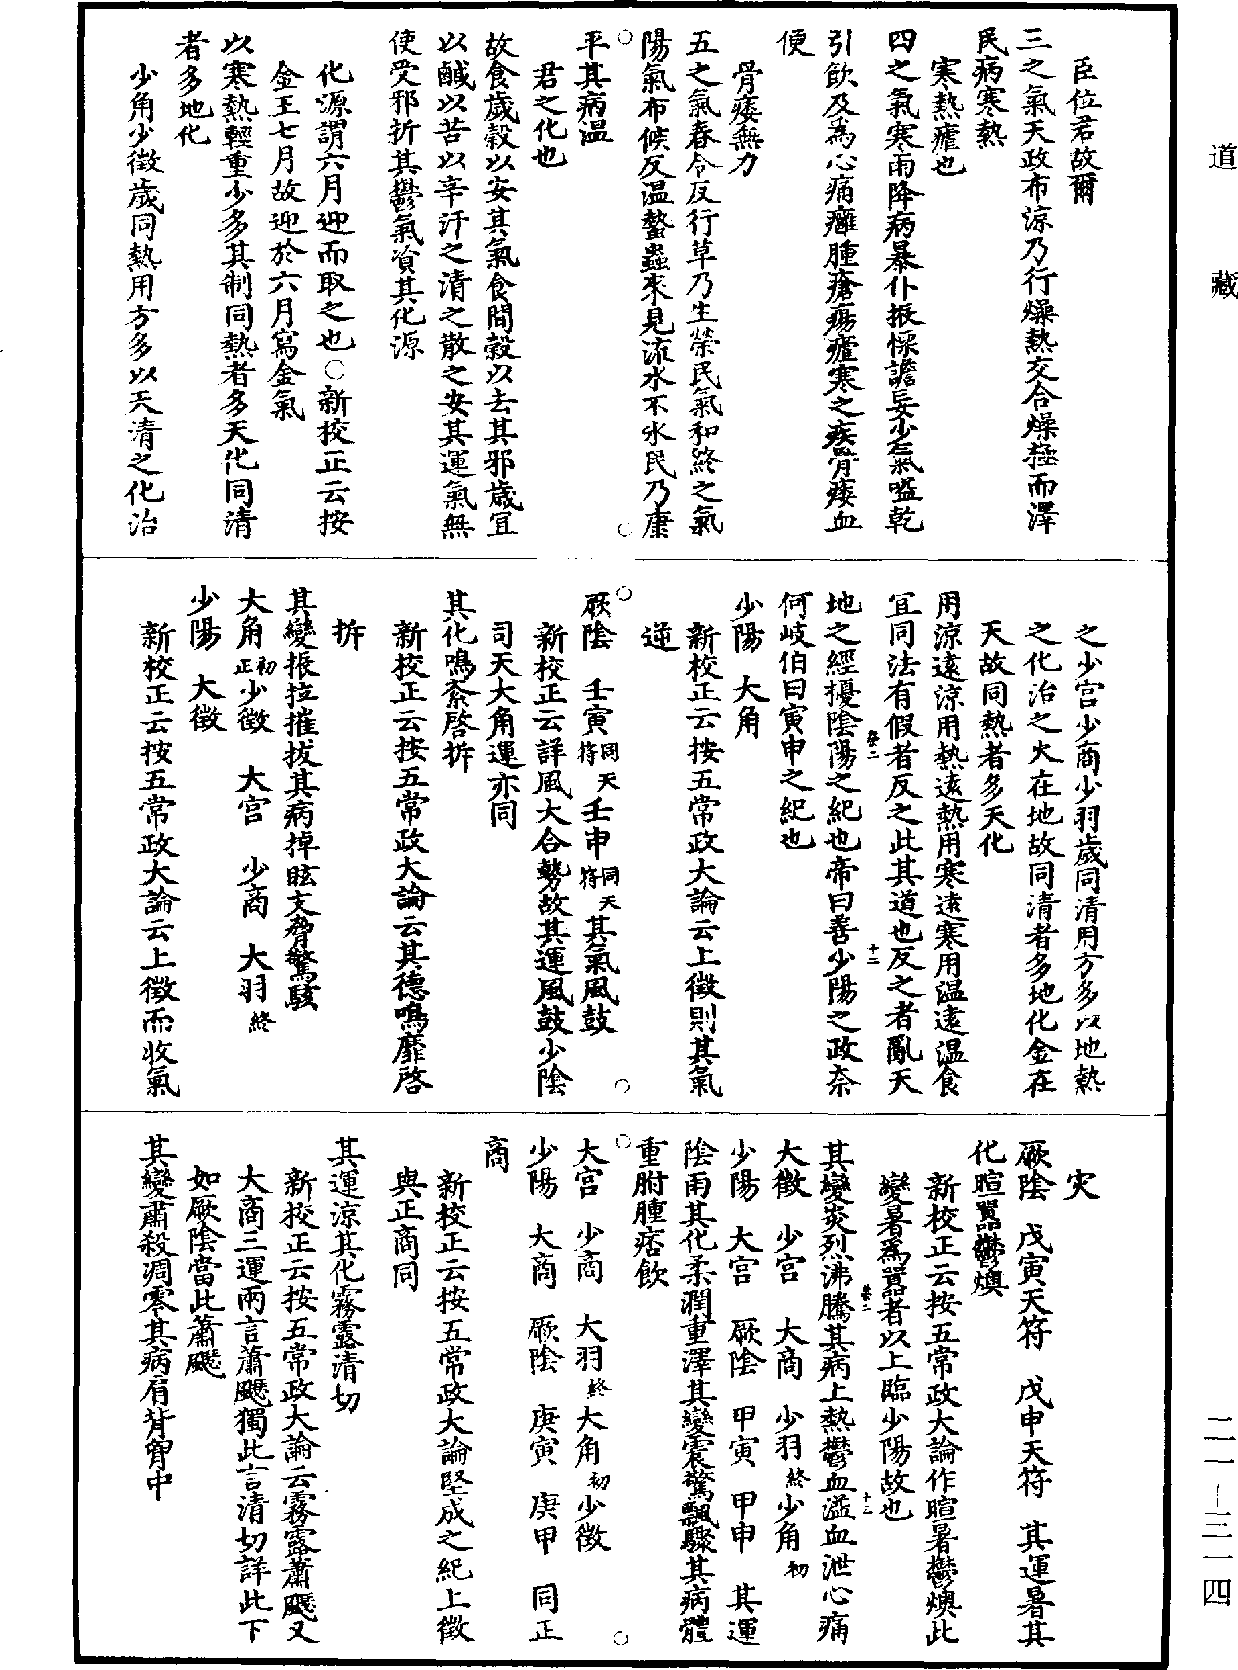 道藏
臣位君故爾
三之氣天政布涼乃行燥熱交合燥極而澤
民病寒熱
寒熱瘧也
四之氣寒雨降病暴仆振慄譫妄少氣嗌乾
引飲及為心痛癰腫瘡瘍瘧寒之疾骨痿血
便
骨痿無力
五之氣春令反行草乃生榮民氣和終之氣
陽氣布候反溫蟄蟲來見流水不氷民乃康
平其病溫
君之化也
故食歲穀以安其氣食間穀以去其邪歲宜
以鹹以苦以辛汗之清之散之安其運氣無
使受邪折其鬱氣資其化源
化源謂六月迎而取之也○新校正云按
金王七月故迎於六月寫金氣
以寒熱輕重少多其制同熱者多天化同清
者多地化
少角少徵歲同熱用方多以天清之化治
之少宮少商少羽歲同清用方多以地熱
之化治之火在地故同清者多地化金在
天故同熱者多天化
用涼遠涼用熱遠熱用寒遠寒用溫遠溫食
宜同法有假者反之此其道也反之者亂天
卷二 十二
地之經擾陰陽之紀也帝曰善少陽之政奈
何岐伯曰寅申之紀也
少陽 大角
新校正云按五常政大論云上徵則其氣
逆
厥陰 壬寅同天符 壬申同天符 其氣風鼓
新校正云詳風火合勢故其運風鼓少陰
司天大角運亦同
其化鳴紊啓拆
新校正云按五常政大論云其德鳴靡啓
拆
其變振拉摧拔其病掉眩支脅驚駭
大角初正 少徵 大宮 少商 大羽終
少陽 大徵
新校正云按五常政大論云上徵而收氣
灾
厥陰 戊寅天符 戊申天符 其運暑其
化暄嚻鬱燠
新校正云按五常政大論作暄暑鬱燠此
變暑為嚻者以上臨少陽故也
卷二 十三
其變炎烈沸騰其病上熱鬱血溢血泄心痛
大徵 少宮 大商 少羽終 少角初
少陽 大宮 厥陰 甲寅 甲申 其運
陰雨其化柔潤重澤其變震驚飄驟其病體
重胕腫痞飲
大宮 少商 大羽終 大角初 少徵
少陽 大商 厥陰 庚寅 庚甲 同正
商
新校正云按五常政大論云堅成之紀上徵
與正商同
其運涼其化霧露清切
新校正云按五常政大論云霧露蕭飋又
大商三運兩言蕭飋獨此言清切詳此下
如厥陰當此蕭飋
其變肅殺凋零其病肩背胷中
二一—三一四